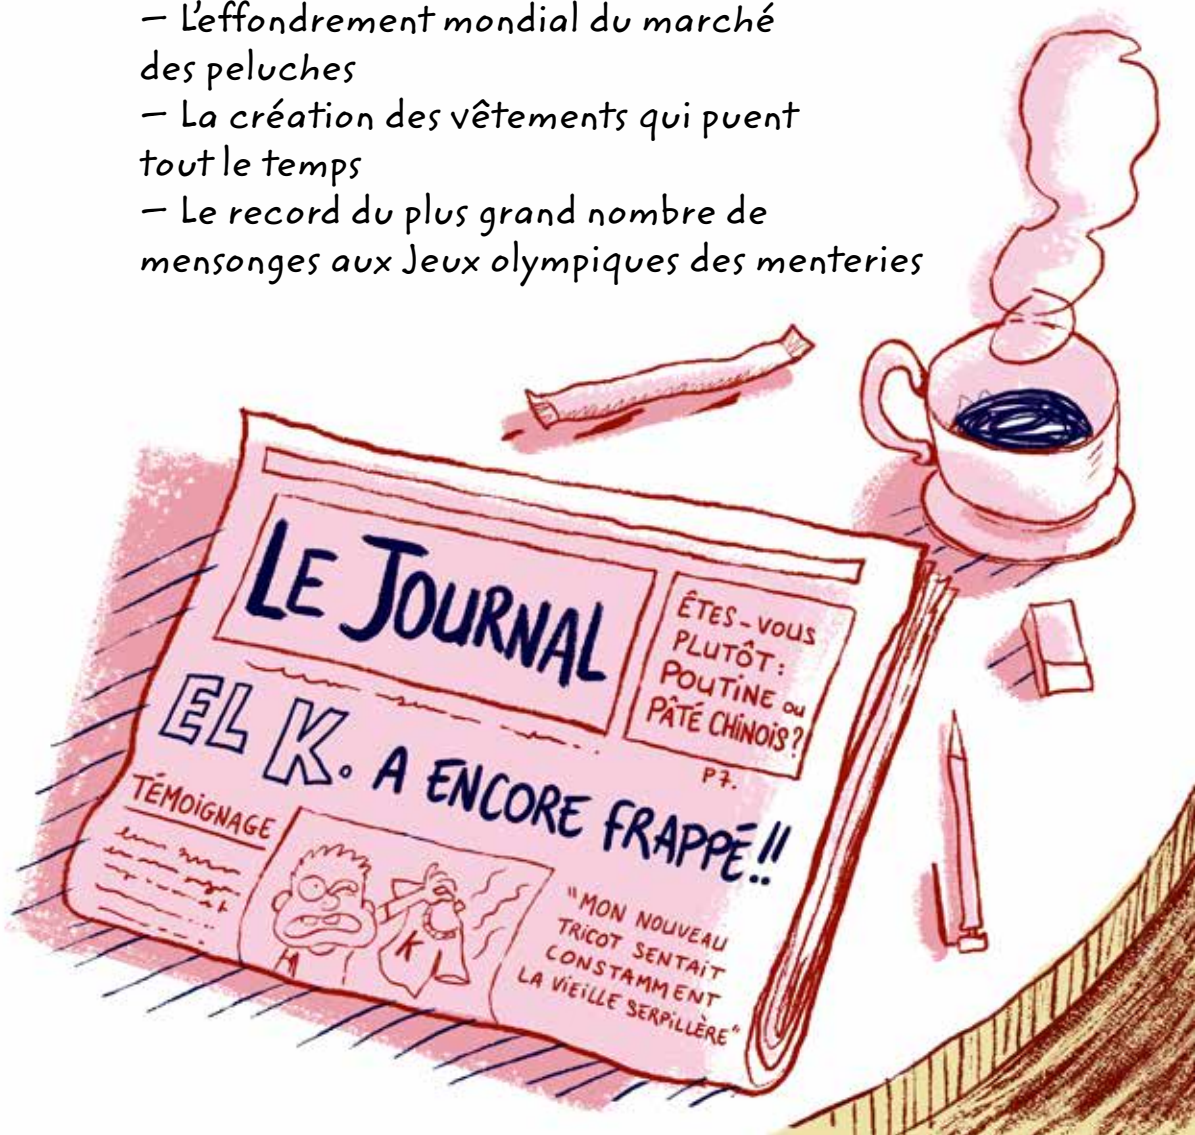 — L'effondrement mondial du marché
des peluches
— La création des vêtements qui puent
tout le temps
— Le record du plus grand nombre de
mensonges aux Jeux olympiques des menteries
LE JOURNAL
ÊTES-VOUS
PLUTÔT :
POUTINE ou
PÂTÉ CHINOIS ?
P7.
EL K. A ENCORE FRAPPÉ !!
TÉMOIGNAGE
K
"MON NOUVEAU
TRICOT SENTAIT
CONSTAMMENT
LA VIEILLE SERPILLÈRE"